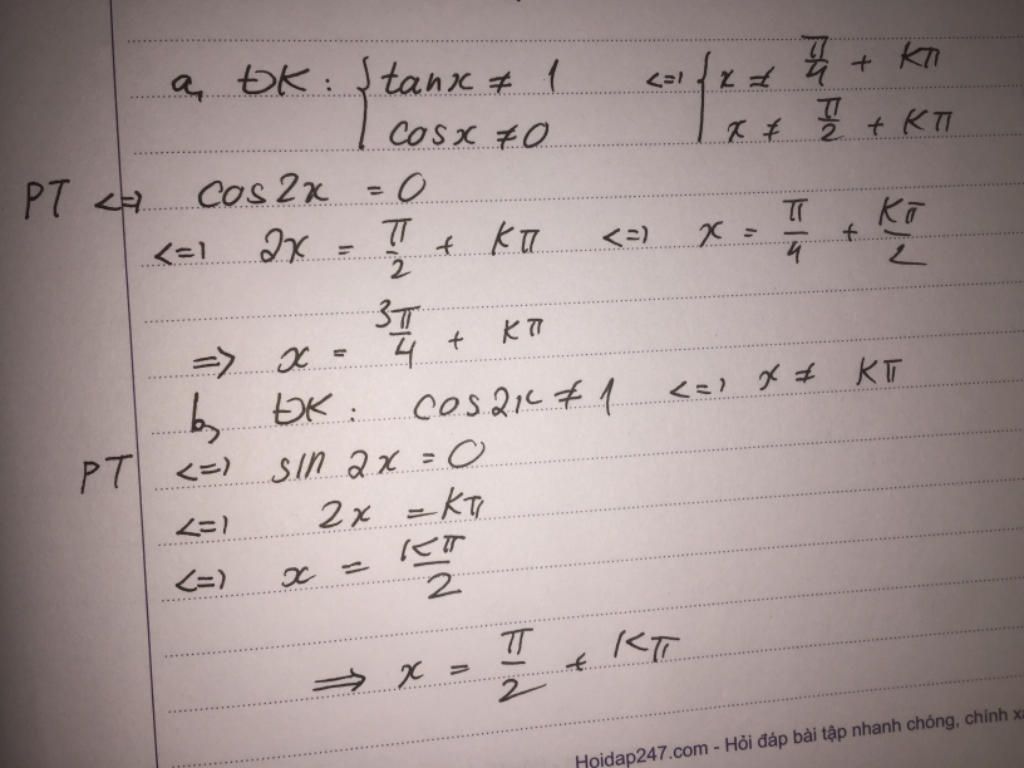 a, ĐK : { tanx ≠ 1 <=> { x ≠ π/4 + Kπ
cosx ≠ 0 x ≠ π/2 + Kπ
PT <=> cos2x = 0
<=> 2x = π/2 + Kπ <=> x = π/4 + Kπ/2
=> x = 3π/4 + Kπ
b, ĐK : cos2x ≠ 1 <=> x ≠ Kπ
PT <=> sin 2x = 0
<=> 2x = Kπ
<=> x = Kπ/2
=> x = π/2 + Kπ
Hoidap247.com - Hỏi đáp bài tập nhanh chóng, chính x